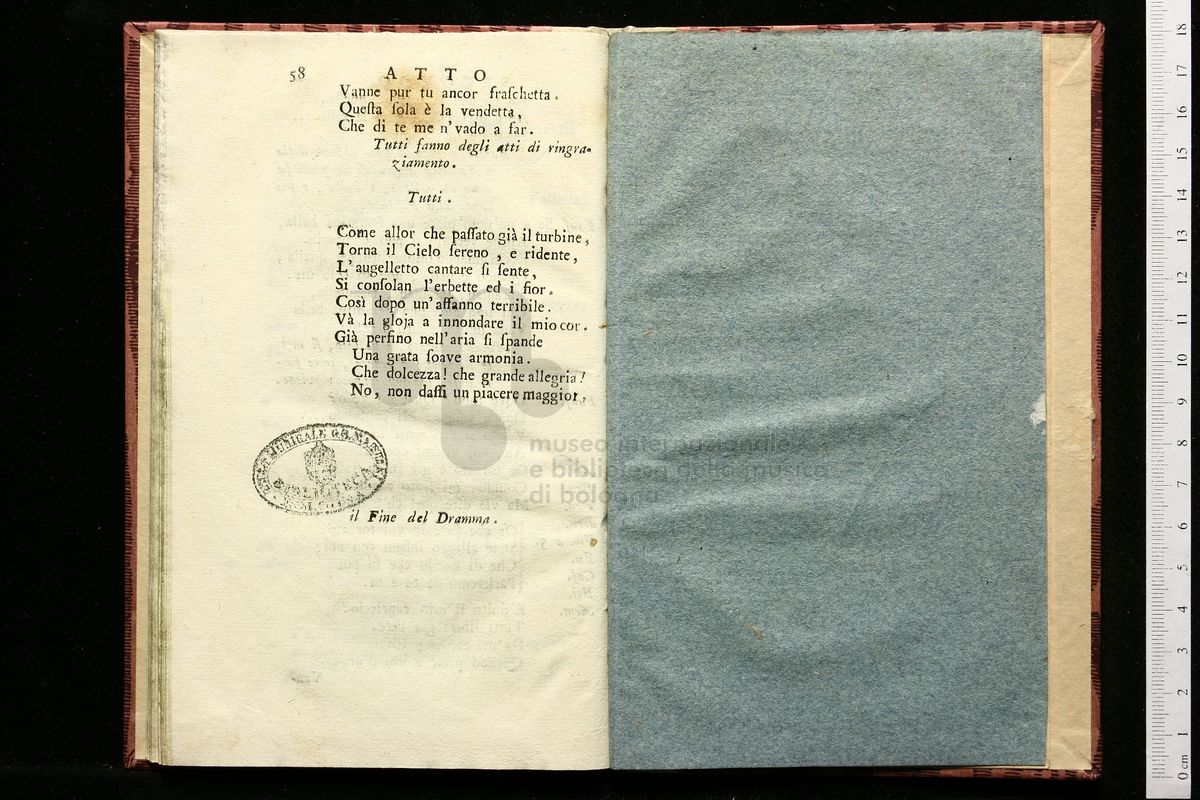 58 ATTO
Vanne pur tu ancor fraſchetta.
Queſta ſola è la vendetta,
Che di te me n'vado a far.
Tutti fanno degli atti di ringra-
ziamento.
Tutti.
Come allor che paſſato già il turbine,
Torna il Cielo ſereno, e ridente,
L'augelletto cantare ſi ſente,
Si conſolan l'erbette ed i fior.
Così dopo un'affanno terribile.
Và la gloja a innondare il mio cor.
Già perfino nell'aria ſi ſpande
Una grata ſoave armonia.
Che dolcezza! che grande allegria!
No, non daſſi un piacere maggior,
museo internazionale
e biblioteca della musica
di bologna
BIBLIOTECA
il Fine del Dramma.
18
17
16
15
14
13
12
11
10
9
8
7
6
5
4
3
2
1
0 cm